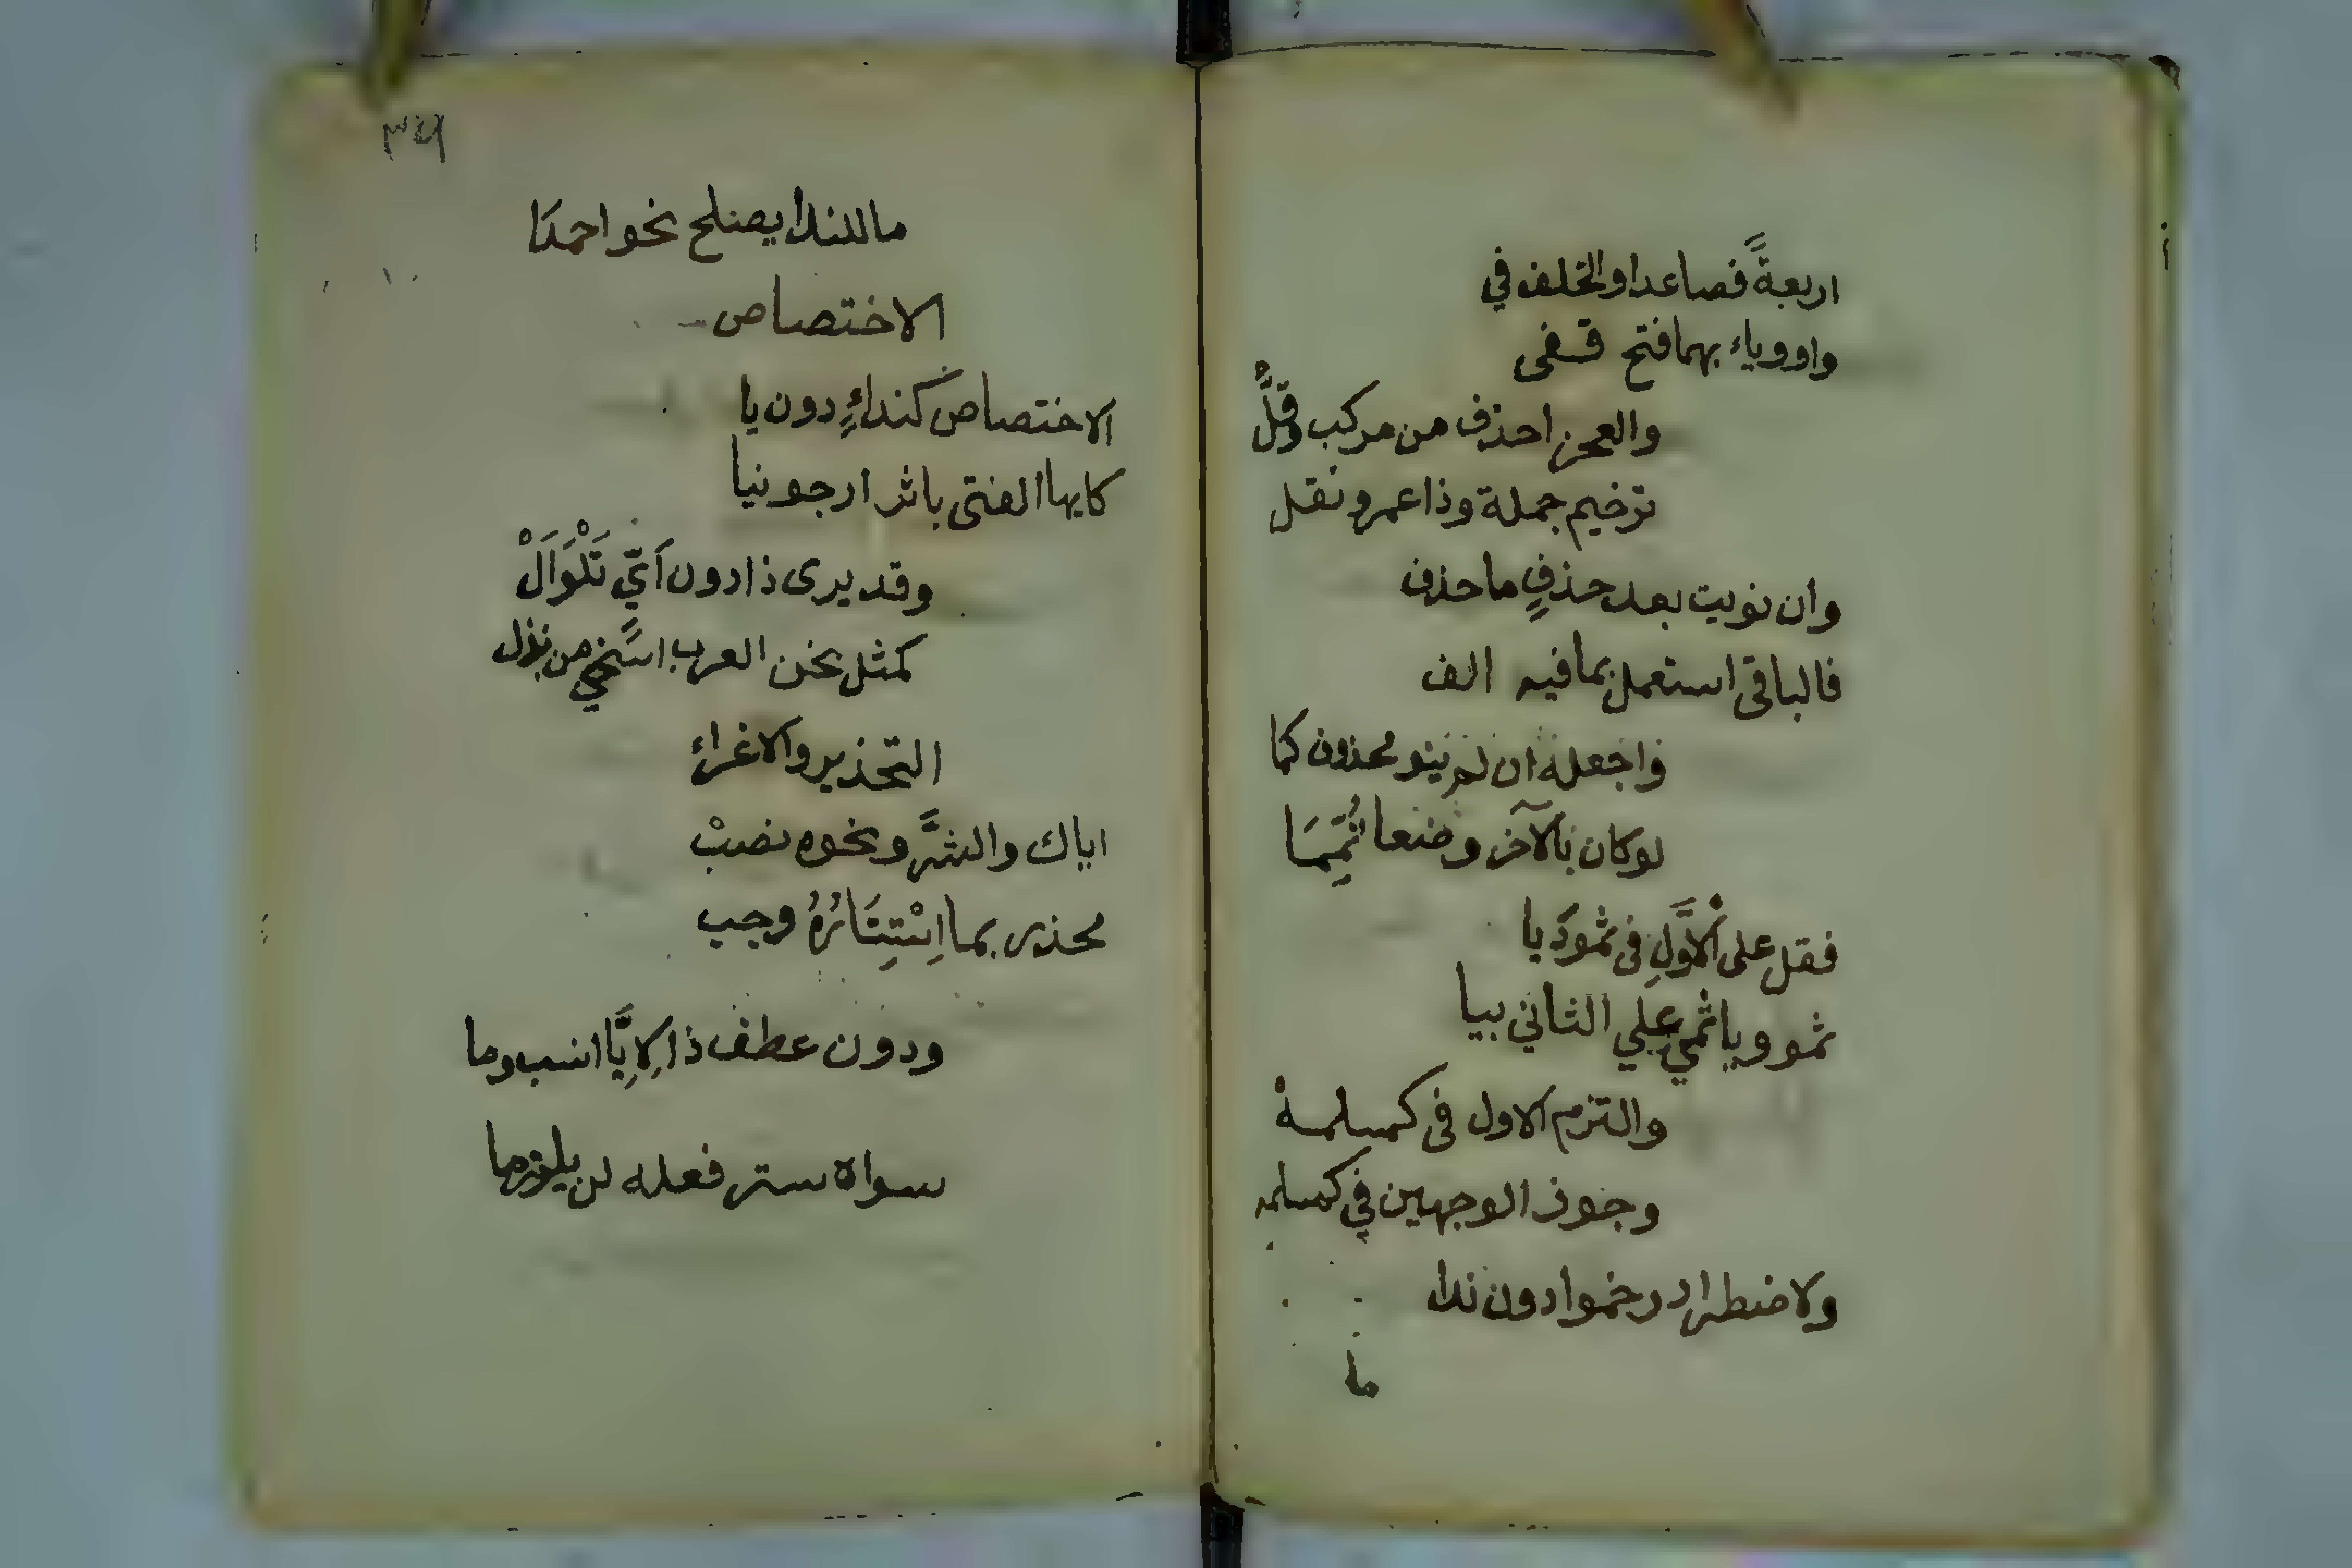 اربعةً فصاعدا والخلف في
واو وياء بهما فتح قفى
والعجز احذف من مركب وقلَّ
ترخيم جملة وذا عمرو نقل
وان نويت بعد حذفٍ ما حذف
فالباقى استعمل بما فيه الف
واجعله ان لم ينو محذوف كما
لو كان بالآخر وضعا تُمِّمَا
فقل على الاَوَّلِ فى ثمودَ يا
ثمو ويا ثمي علي الثاني بيا
والتزم الاول فى كمسلمة
وجوز الوجهين في كمسلمه
ولاضطرار رخموا دون ندا
ما
٣٤
ما للندا يصلح نحو احمدَا
الاختصاص
الاختصاصَ كنداءٍ دون يا
كايها الفتى باثر ارجونيا
وقد يرى ذا دون اَيٍّ تَلْوَاَلْ
كمثل نحن العرب اسخي من بذل
التحذير والاغراء
اياك والشَّر ونحوه نصبْ
محذر بما اِسْتِتَارُهُ وجب
ودون عطف ذا لِاِيَّا انسب وما
سواه ستر فعله لن يلزما